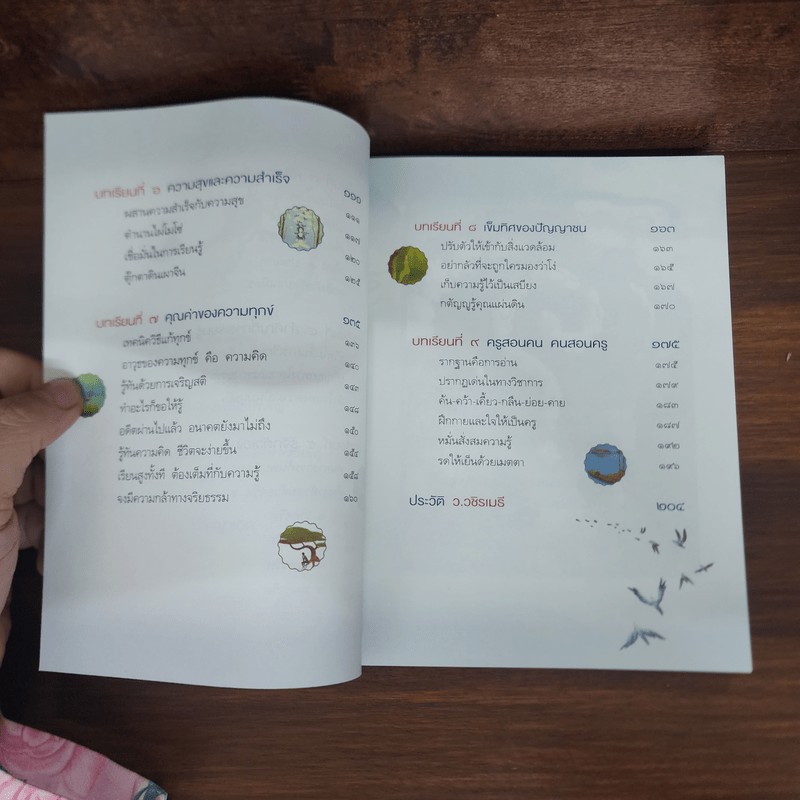 บทเรียนที่ ๖ ความสุขและความสำเร็จ ๑๑๑
ผสานความสำเร็จกับความสุข ๑๑๑
ตำนานไผ่โมโซ่ ๑๑๗
เชื่อมั่นในการเรียนรู้ ๑๒๐
ตุ๊กตาดินเผาจีน ๑๒๕
บทเรียนที่ ๗ คุณค่าของความทุกข์ ๑๓๕
เทคนิควิธีแก้ทุกข์ ๑๓๖
อาวุธของความทุกข์ คือ ความคิด ๑๔๐
รู้ทันด้วยการเจริญสติ ๑๔๓
ทำอะไรก็ขอให้รู้ ๑๔๘
อดีตผ่านไปแล้ว อนาคตยังมาไม่ถึง ๑๕๐
รู้ทันความคิด ชีวิตจะง่ายขึ้น ๑๕๔
เรียนสูงทั้งที ต้องเต็มที่กับความรู้ ๑๕๘
จงมีความกล้าทางจริยธรรม ๑๖๐
บทเรียนที่ ๘ เข็มทิศของปัญญาชน ๑๖๓
ปรับตัวให้เข้ากับสิ่งแวดล้อม ๑๖๓
อย่ากลัวที่จะถูกใครมองว่าโง่ ๑๖๕
เก็บความรู้ไว้เป็นเสบียง ๑๖๗
กตัญญูรู้คุณแผ่นดิน ๑๗๐
บทเรียนที่ ๙ ครูสอนคน คนสอนครู ๑๗๕
รากฐานคือการอ่าน ๑๗๕
ปรากฏเด่นในทางวิชาการ ๑๗๙
ค้น-คว้า-เคี้ยว-กลืน-ย่อย-คาย ๑๘๓
ฝึกกายและใจให้เป็นครู ๑๘๗
หมั่นสั่งสมความรู้ ๑๙๒
รดให้เย็นด้วยเมตตา ๑๙๖
ประวัติ ว.วชิรเมธี ๒๐๔